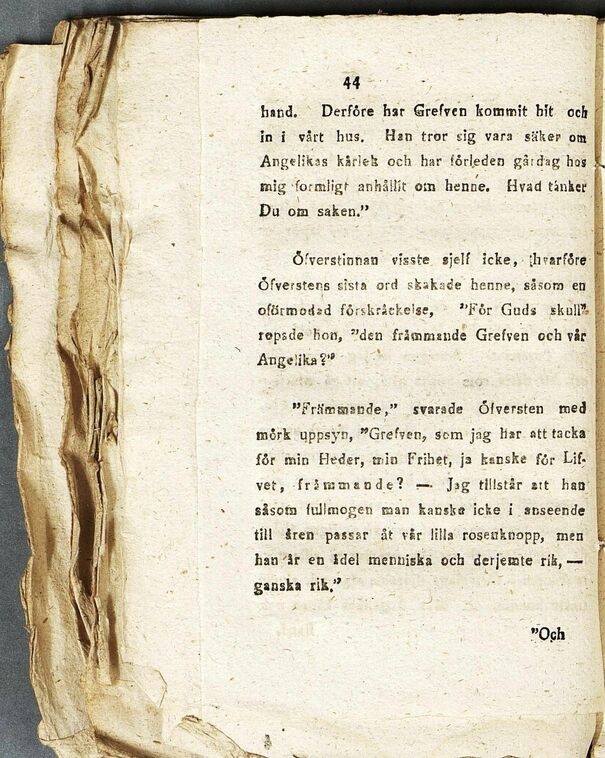 44
hand. Derföre har Grefven kommit hit och
in i vårt hus. Han tror sig vara säker om
Angelikas kärlek och har förleden gårdag hos
mig formligt anhållit om henne. Hvad tänker
Du om saken."
Öfverstinnan visste sjelf icke, hvarföre
Öfverstens sista ord skakade henne, såsom en
oförmodad förskräckelse, "För Guds skull"
ropade hon, "den främmande Grefven och vår
Angelika?"
"Främmande," svarade Öfversten med
mörk uppsyn, "Grefven, som jag har att tacka
för min Heder, min Frihet, ja kanske för Lif-
vet, främmande? — Jag tillstår att han
såsom fullmogen man kanske icke i anseende
till åren passar åt vår lilla rosenknopp, men
han är en ädel menniska och derjemte rik, —
ganska rik."
"Och